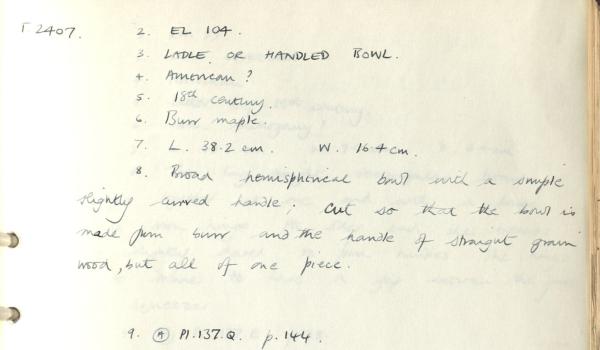 T 2407. 2. EL 104.
3. LADLE OR HANDLED BOWL.
4. American?
5. 18th century.
6. Burr maple.
7. L. 38.2 cm. W. 16.4 cm.
8. Broad hemispherical bowl with a simple
slightly curved handle; cut so that the bowl is
made from burr and the handle of straight grain
wood, but all of one piece.
9. Ⓐ Pl. 137. Q. p. 144.